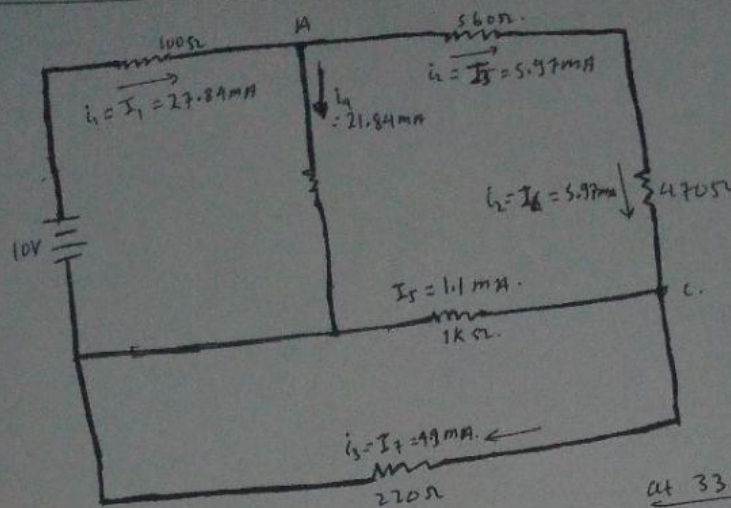 100Ω
A
560Ω.
i₁ = I₁ = 27.84mA
i₄
= 21.84mA
i₂ = I₃ = 5.97mA
10V
i₂ = I₆ = 5.97mA
470Ω
I₅ = 1.1 mA.
C.
1KΩ.
i₃ = I₇ = 49mA.
220Ω
at 33